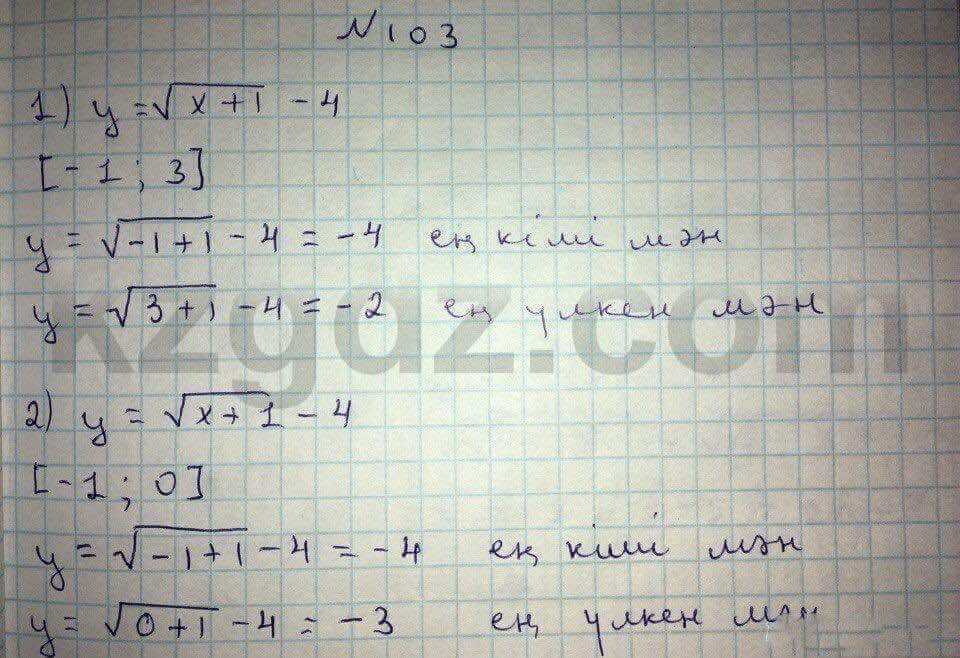 N 103
1) y = √(x + 1) - 4
[-1; 3]
y = √(-1 + 1) - 4 = -4 ең кіші мән
y = √(3 + 1) - 4 = -2 ең үлкен мән
kzgdz.com
2) y = √(x + 1) - 4
[-1; 0]
y = √(-1 + 1) - 4 = -4 ең кіші мән
y = √(0 + 1) - 4 = -3 ең үлкен мән